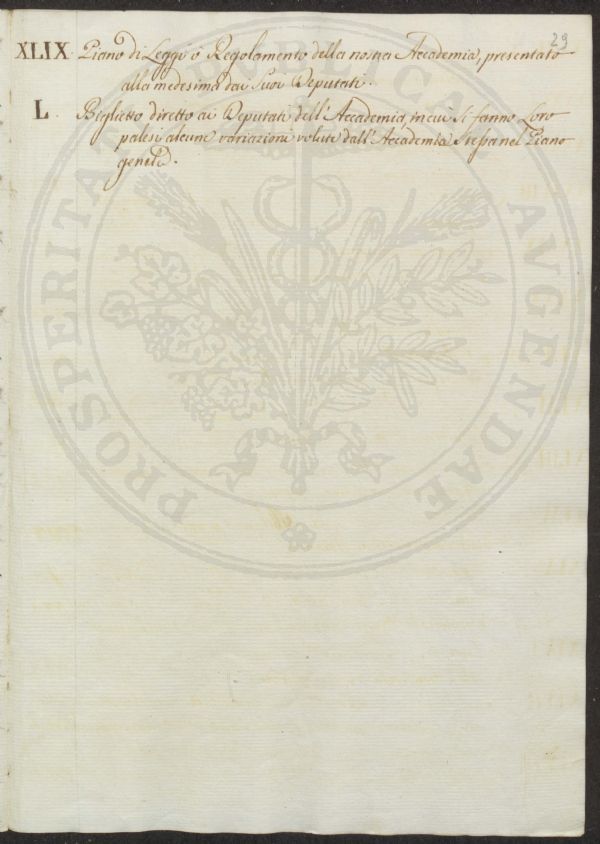 29
XLIX. Piano di Leggi o Regolamento della nostra Accademia, presentato
alla medesima dai Suoi Deputati.
L. Biglietto diretto ai Deputati dell'Accademia, in cui si fanno Loro
palesi alcune variazioni volute dall'Accademia Stessa nel Piano
genele.
PROSPERITATI PUBLICAE AVGENDAE